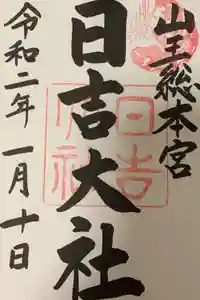 山王総本宮
日吉大社
日吉大社
令和二年一月十日